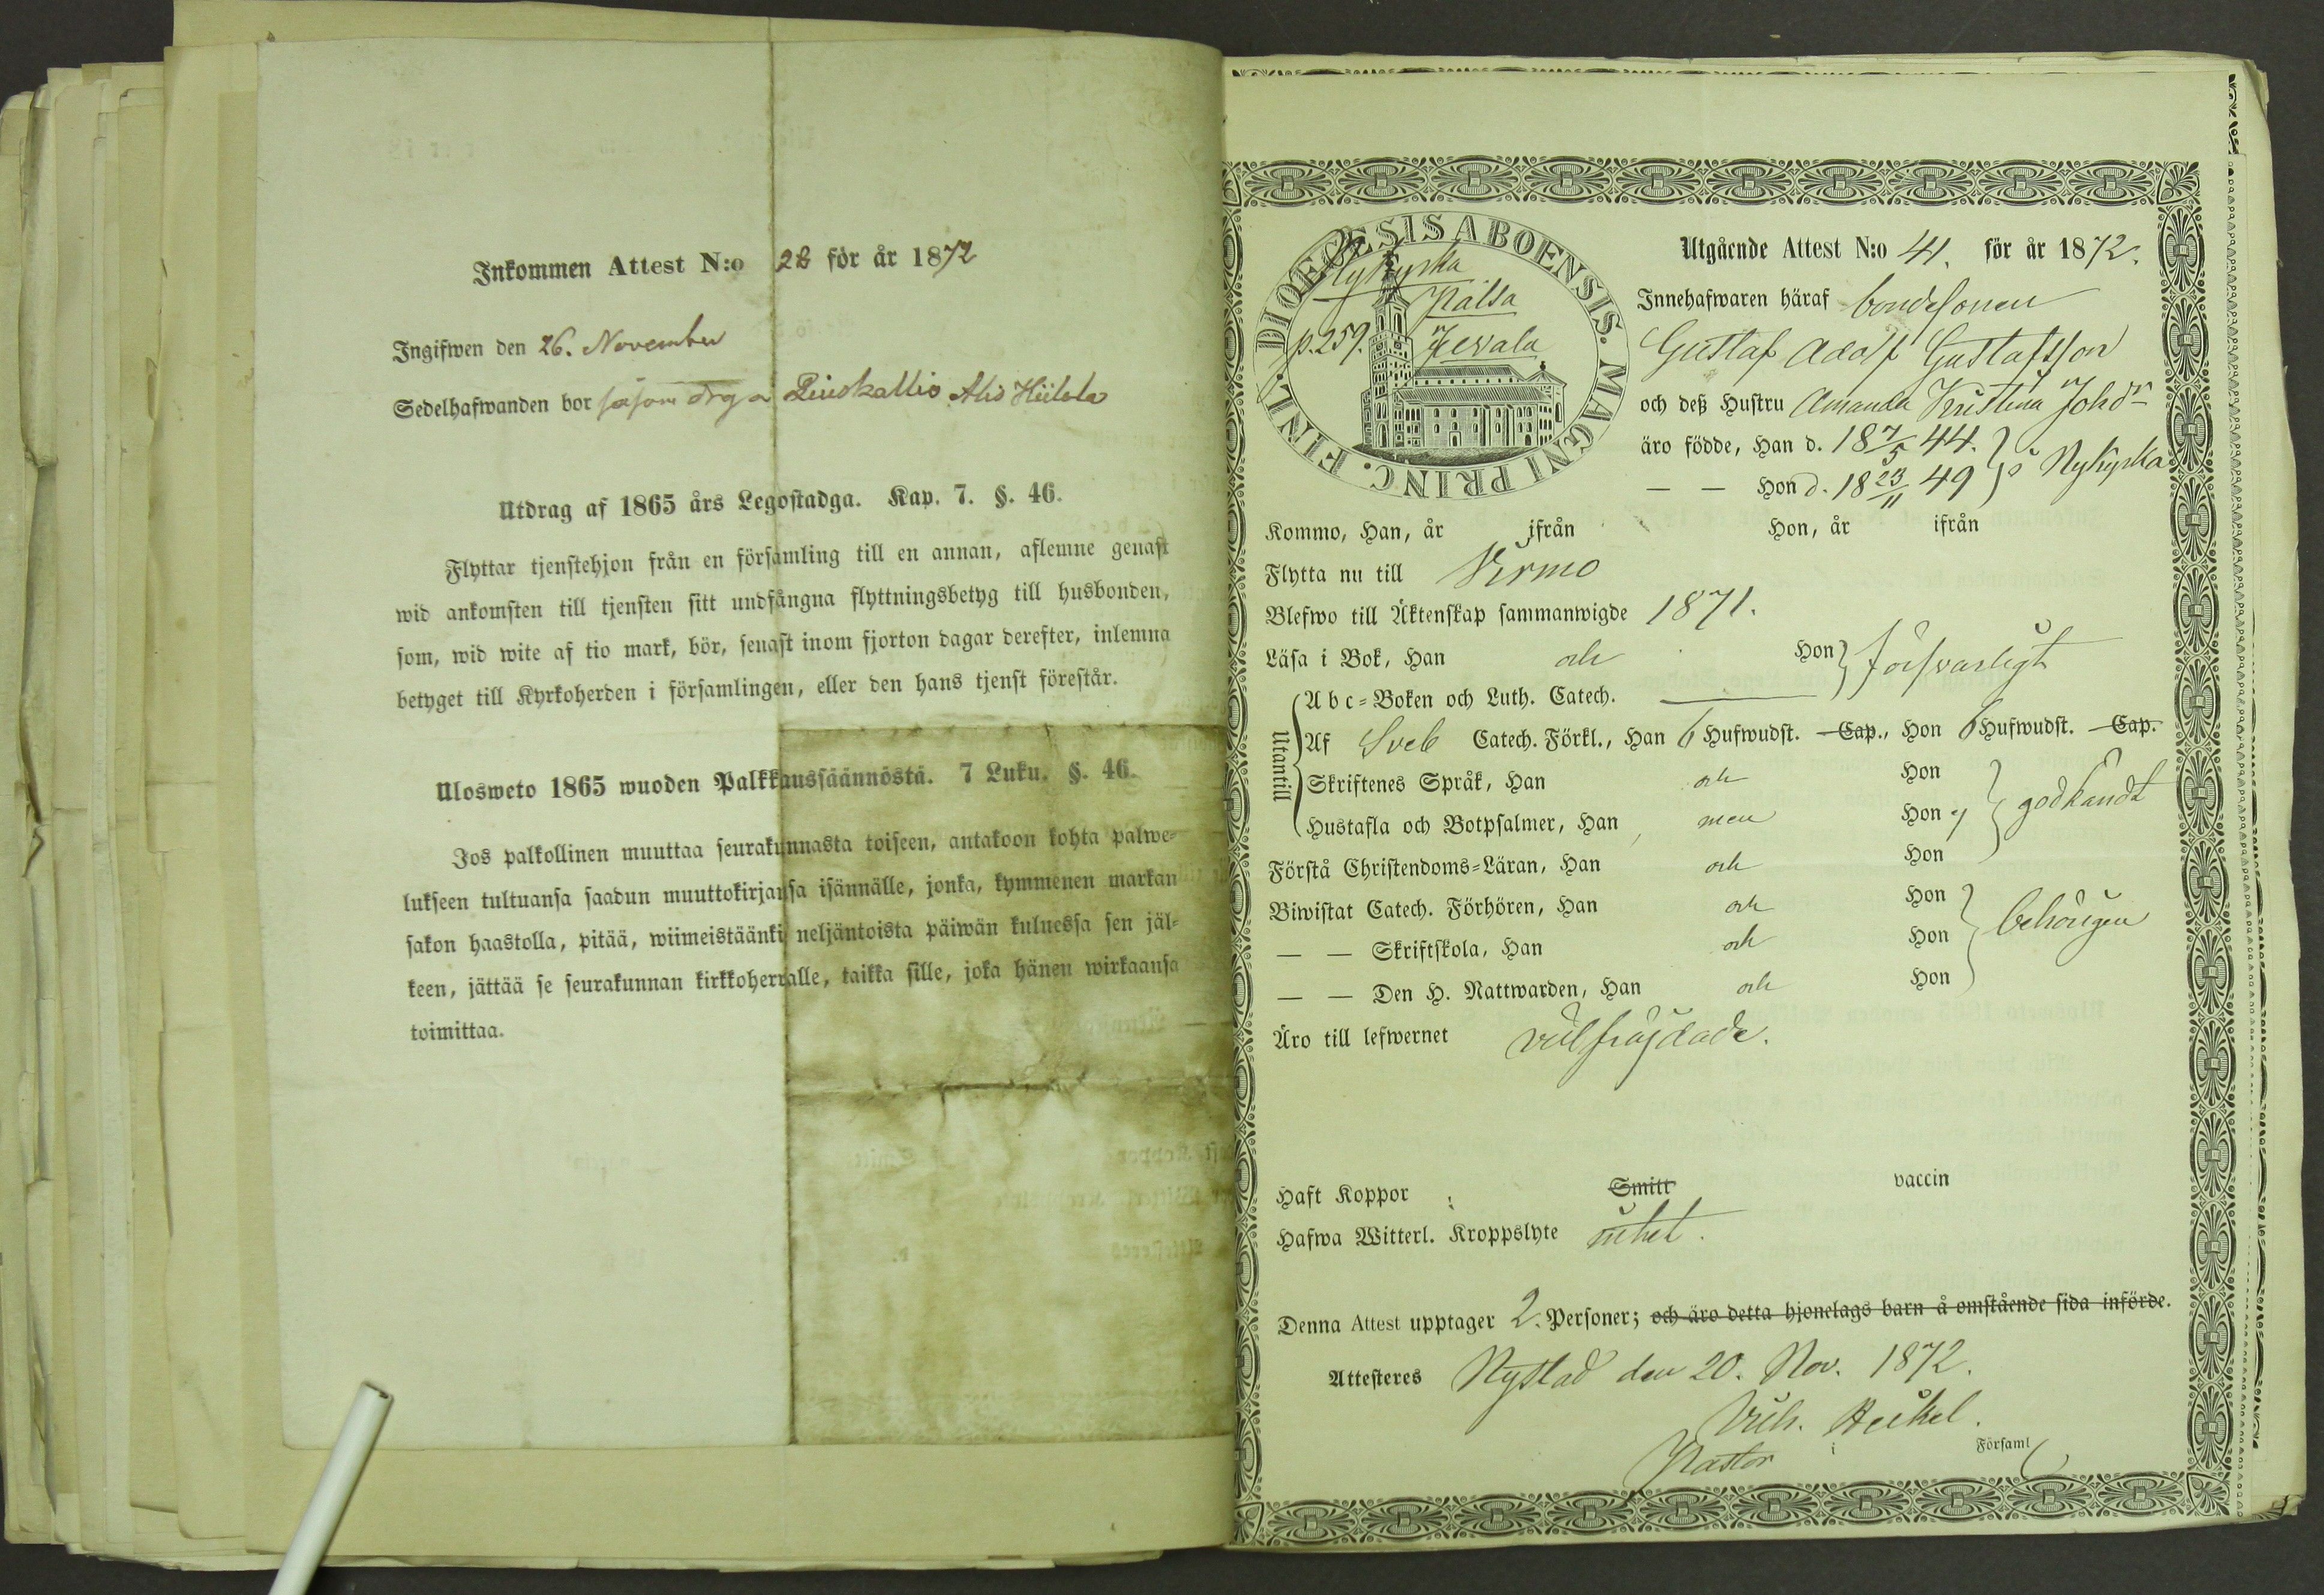 Inkommen Attest N:o 28 för år 1872
Ingifwen den 26. November
Sedelhafwanden bor såsom drg å Hiilola
Utdrag af 1865 års Legostadga. Kap. 7. §. 46.
Flyttar tjenstehjon från en församling till en annan, aflemne genast
wid ankomsten till tjensten sitt undfångna flyttningsbetyg till husbonden,
som, wid wite af tio mark, bör, senast inom fjorton dagar derefter, inlemna
betyget till Kyrkoherden i församlingen, eller den hans tjenst förestår.
Ulosweto 1865 wuoden Palkkaussäännöstä. 7 Luku. §. 46.
Jos palkollinen muuttaa seurakunnasta toiseen, antakoon kohta palwe-
lukseen tultuansa saadun muuttokirjansa isännälle, jonka, kymmenen markan
sakon haastolla, pitää, wiimeistäänki neljäntoista päiwän kuluessa sen jäl-
keen, jättää se seurakunnan kirkkoherralle, taikka sille, joka hänen wirkaansa
toimittaa.
DIOECESIS ABOENSIS. MAGNI PRINC. FINL.
Nykyrka
Kalsa
p. 259. Jewala
Utgående Attest N:o 41. för år 1872.
Innehafwaren häraf bondesonen
Gustaf Adolf Gustafsson
och deß Hustru Amanda Kristina Johdr
äro födde, Han d. 18 7/5 44.
— — Hon d. 18 23/11 49 } i Nykyrka
Kommo, Han, år ifrån Hon, år ifrån
Flytta nu till Virmo
Blefwo till Äktenskap sammanwigde 1871.
Läsa i Bok, Han och Hon } försvarligt
Utantill
Abc-Boken och Luth. Catech.
Af Sveb Catech. Förkl., Han 6 Hufwudst. Cap., Hon 6 Hufwudst. Cap.
Skriftenes Språk, Han och Hon
Hustafla och Botpsalmer, Han, men Hon ej } godkändt
Förstå Christendoms-Läran, Han och Hon
Biwistat Catech. Förhören, Han och Hon
— — Skriftskola, Han och Hon } behörigen
— — Den H. Nattwarden, Han och Hon
Äro till lefwernet välfräjdade.
Haft Koppor : Smitt vaccin
Hafwa Witterl. Kroppslyte intet.
Denna Attest upptager 2. Personer; och äro detta hjonelags barn å omstående sida införde.
Attesteres Nystad den 20. Nov. 1872.
Vilh. Heikel.
Pastor i Församl